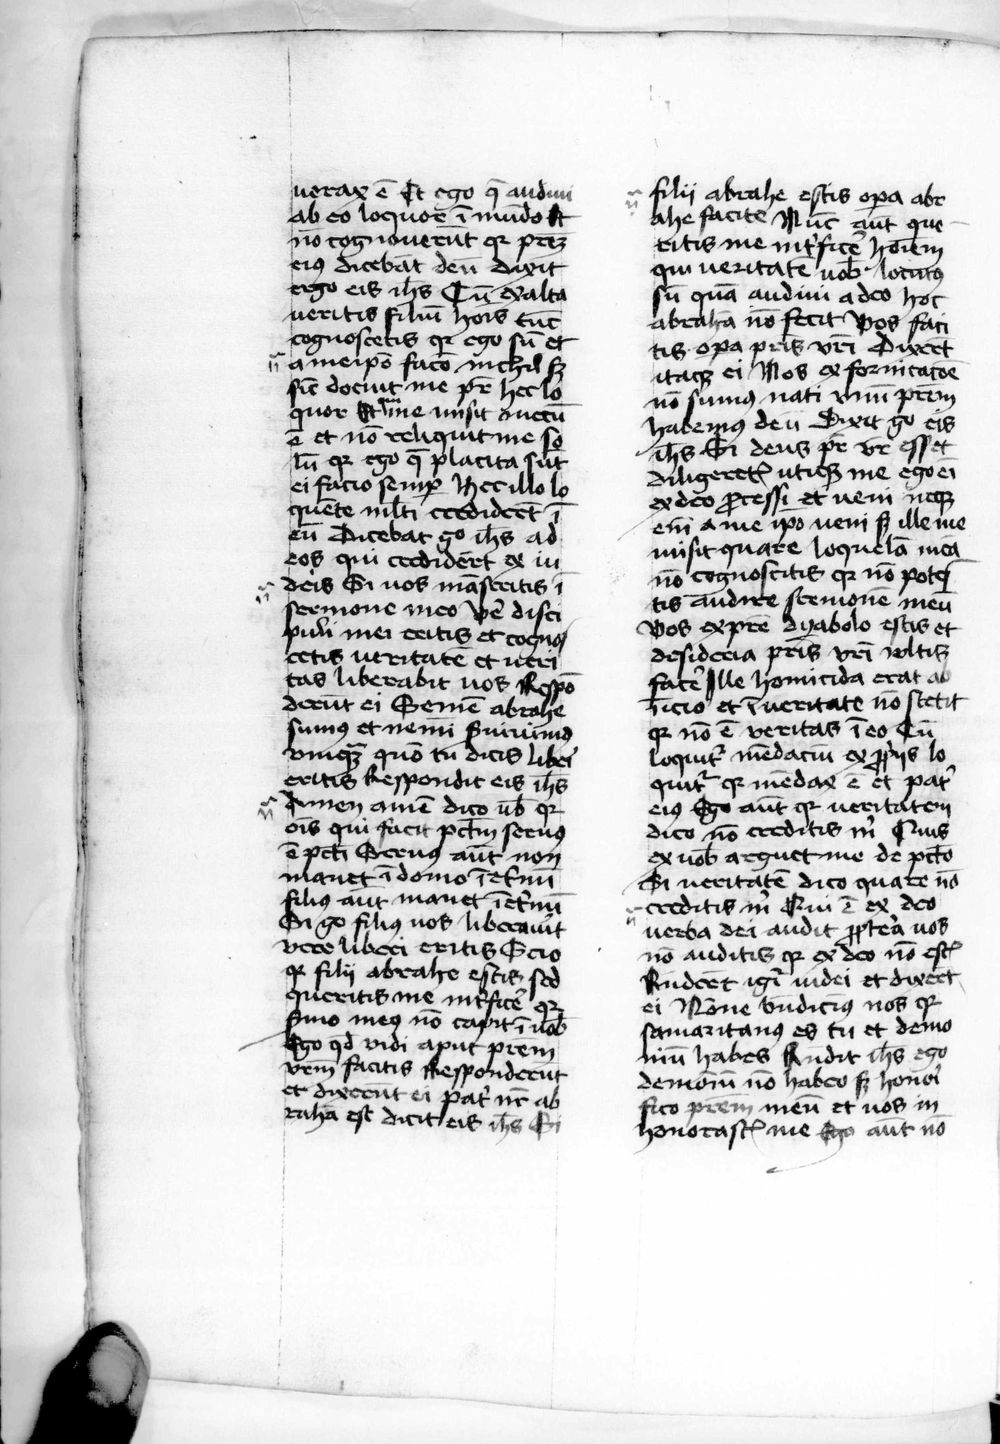 uerax ē Et ego q̄ audiui
ab eo loquor ī mūdo Et
nō cognouerūt qr prēz
eiꝰ dicebāt deū Dixit
ergo eis ih̄s Cū exalta
ueritis filiū hoīs tūc
cognoscetis qr ego sū et
a meip̄o facō nichil sꝫ
sic̄ docuit me pr̄ hec lo
quor Et qui me misit mecū
ē et nō reliquit me so
lū qr ego q̄ placita sūt
ei facio semꝑ Hec illo lo
quēte ml̄ti crediderūt ī
eū Dicebat gͦ ih̄s ad
eos qui crediderūt ex iu
deis Si uos māseritis ī
sermone meo ve᷑ disci
puli mei eritis et cognos
cetis ueritatē et ueri
tas liberabit uos Respō
derūt ei Semē abrahe
sumꝰ et nemī seruiuimꝰ
vmqꝫ quō tu dicis liberi
eritis Respondit eis ih̄s
Amen amē dico vob̄ qr
oīs qui facit pctm̄ seruꝰ
ē pcti Seruus aūt non
manet ī domo ī et᷑nū
filiꝰ aūt manet ī et᷑nū
Si gͦ filiꝰ uos liberauit
vere liberi eritis Scio
qr filii abrahe estis sed
queritis me int᷑ficē qr
s᷑mo meꝰ nō capit ī uob̄
Ego qd̄ vidi aput prēm
vrēm facitis Responderūt
et dixerūt ei pat᷑ nr̄ ab
rahā est dicit eis ih̄s Si
filii abrahe estis opa abr
ahe facite Nūc aūt que
ritis me int᷑ficē hoīem
qui ueritatē uob̄ locutꝰ
sū quā audiui a deo hoc
abrahā nō fecit Vos faci
tis opa prīs vrī Dixert̄
itaqꝫ ei Nos ex fornicatōe
nō sumꝰ nati vnū prēm
habemꝰ deū Dixit gͦ eis
ih̄s Si deus pr̄ vr̄ esset
diligeretꝭ utiqꝫ me ego eī
ex deo ꝓcessi et ueni neqꝫ
enī a me ip̄o ueni sꝫ ille me
misit quare loquelā meā
nō cognoscitis qr nō potes
tis audire sermonē meū
Vos ex prē dyabolo estis et
desideria prīs vrī wltis
facē Ille homicida erat ab
īicio et ī ueritate nō stetit
qr nō ē veritas ī eo Cū
loquit᷑ mēdaciū ex ꝓpͥis lo
quit᷑ qr mēdax ē et pat᷑
eiꝰ Ego aūt qr ueritatem
dico nō creditis mͥ Quis
ex uob̄ arguet me de pctō
Si ueritatē dico quare nō
creditis mͥ Qui ē ex deo
uerba dei audit ꝓpterea uos
nō auditis qr ex deo nō estꝭ
Rn̄dert̄ igi᷑ iudei et dixert̄
ei Nōne bn̄dicimꝰ nos qr
samaritanꝰ es tu et demo
niū habes Rn̄dit ih̄s ego
demoniū nō habeo sꝫ honori
fico prēm meū et uos in
honorastꝭ me Ego aūt nō